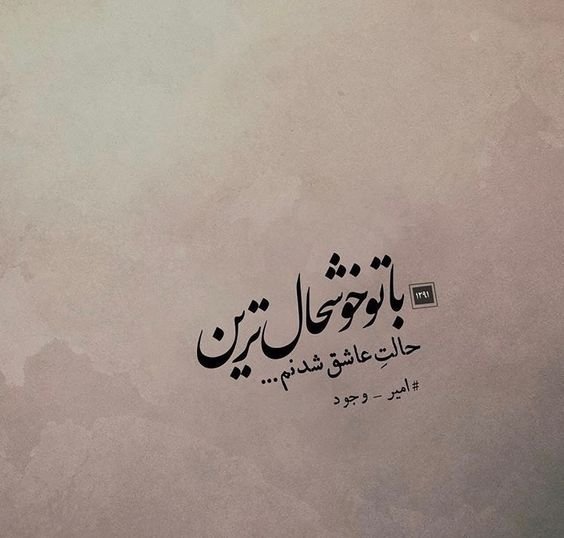 با تو خوشحال ترین
۱۳۹۱
حالتِ عاشق شدنم...
#امیر_وجود